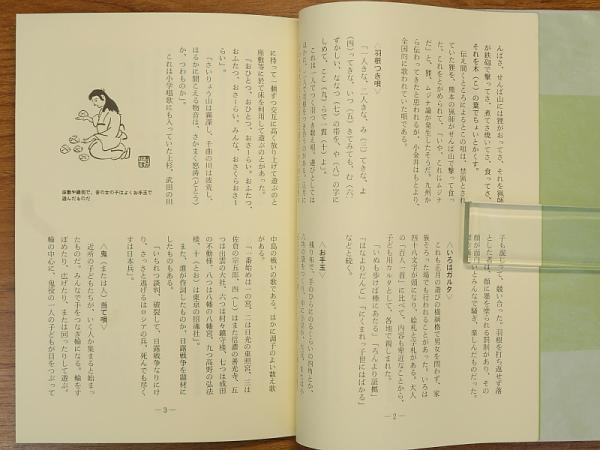 んばさ、せんば山には狸がおってさ、それを猟師
が鉄砲で撃ってさ、煮てさ焼いてさ、食ってさ、
それを木の葉でちょいとかくす。
伝え聞くところによるとこの唄は、禁猟とされ
ていた狸を、熊本の猟師がせんば山で撃って食っ
た。これをとがめられて、「いや、これはムジナ
だ」と、狸、ムジナ論が発生したそうだ。九州か
ら伝わってきたと思われるが、小金井はもとより、
全国的に歌われていた唄である。
〈羽根つき唄〉
「一人きな、二人きな、み(三)てきな、よ
(四)ってきな、いつ(五)きてみても、む(六)
ずかしい、ななつ(七)の帯を、や(八)の字に
しめて、ここ(九)らで一貫(十)よ」。
これは一人でつく羽つき数え唄。遊びとしては
子も混じって、競い合った。羽根を打ち返せず落
とした者は、顔に墨を塗られる罰則があり、その
顔が面白いとみんなで騒ぎ、楽しんだものだった。
〈いろはガルタ〉
これも正月の遊びの横綱格で男女を問わず、家
族そろった場でも行われることがあった。いろは
四十八文字が頭になり、絵札と字札がある。大人
の「百人一首」に比べて、内容も卑近なことから、
子ども用カルタとして、各地で親しまれた。
「いぬも歩けば棒にあたる」「ろんより証拠」
「はなよりだんご」「にくまれっ子世にはばかる」
などと続く。
〈お手玉〉
残り布で、手のひらにのるくらいの四角とか、
— 2 —
に持って一個ずつ交互に高く放り上げて遊ぶのと
座敷等に於て床を利用して遊ぶのとがあった。
「おひとつ、おひとつ、おさーらい。おふたつ、
おふたつ、おさーらい、みんな、おさくらおさー
らい」。
「さいりょう山は霧深し、千曲の川は波荒し、
はるかに聞こえる物音は、さかまく怒濤(どとう)
か、つわものか―」。
これは小学唱歌にも入っていた上杉、武田の川
座敷や縁側で、昔の女の子はよくお手玉で
遊んだものだ
中島の戦いの歌である。ほかに調子のよい数え歌
がある。
「一番始めは一の宮、二は日光の東照宮、三は
佐倉の宗五郎、四(し)はまた信濃の善光寺、五
つは出雲の大社、六つは村々鎮守様、七つは成田
の不動様、八つは八幡の八幡宮、九つ高野の弘法
様、十とおは東京の招魂社」。
また、誰が作詞したものか、日露戦争を題材に
したものもある。
「いちれつ談判、破裂して、日露戦争なりにけ
り、さっさと逃げるはロシアの兵、死んでも尽く
すは日本兵」。
〈鬼(または人)当て唄〉
近所の子どもたちが、いく人か集まると始まっ
たものだ。みんなで手をつなぎ輪になる。輪をす
ぼめたり、広げたり、または回ったりして遊ぶ。
輪の中心に、鬼役の一人の子どもが目をつぶって
— 3 —